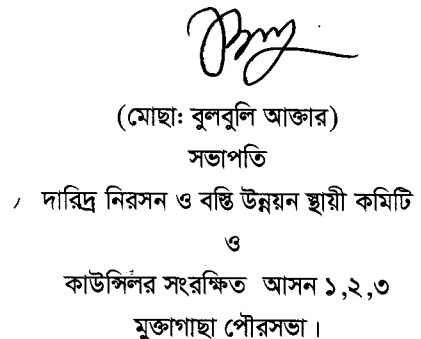 (মোছাঃ বুলবুলি আক্তার)
সভাপতি
দারিদ্র নিরসন ও বস্তি উন্নয়ন স্থায়ী কমিটি
ও
কাউন্সিলর সংরক্ষিত আসন ১,২,৩
মুক্তাগাছা পৌরসভা।